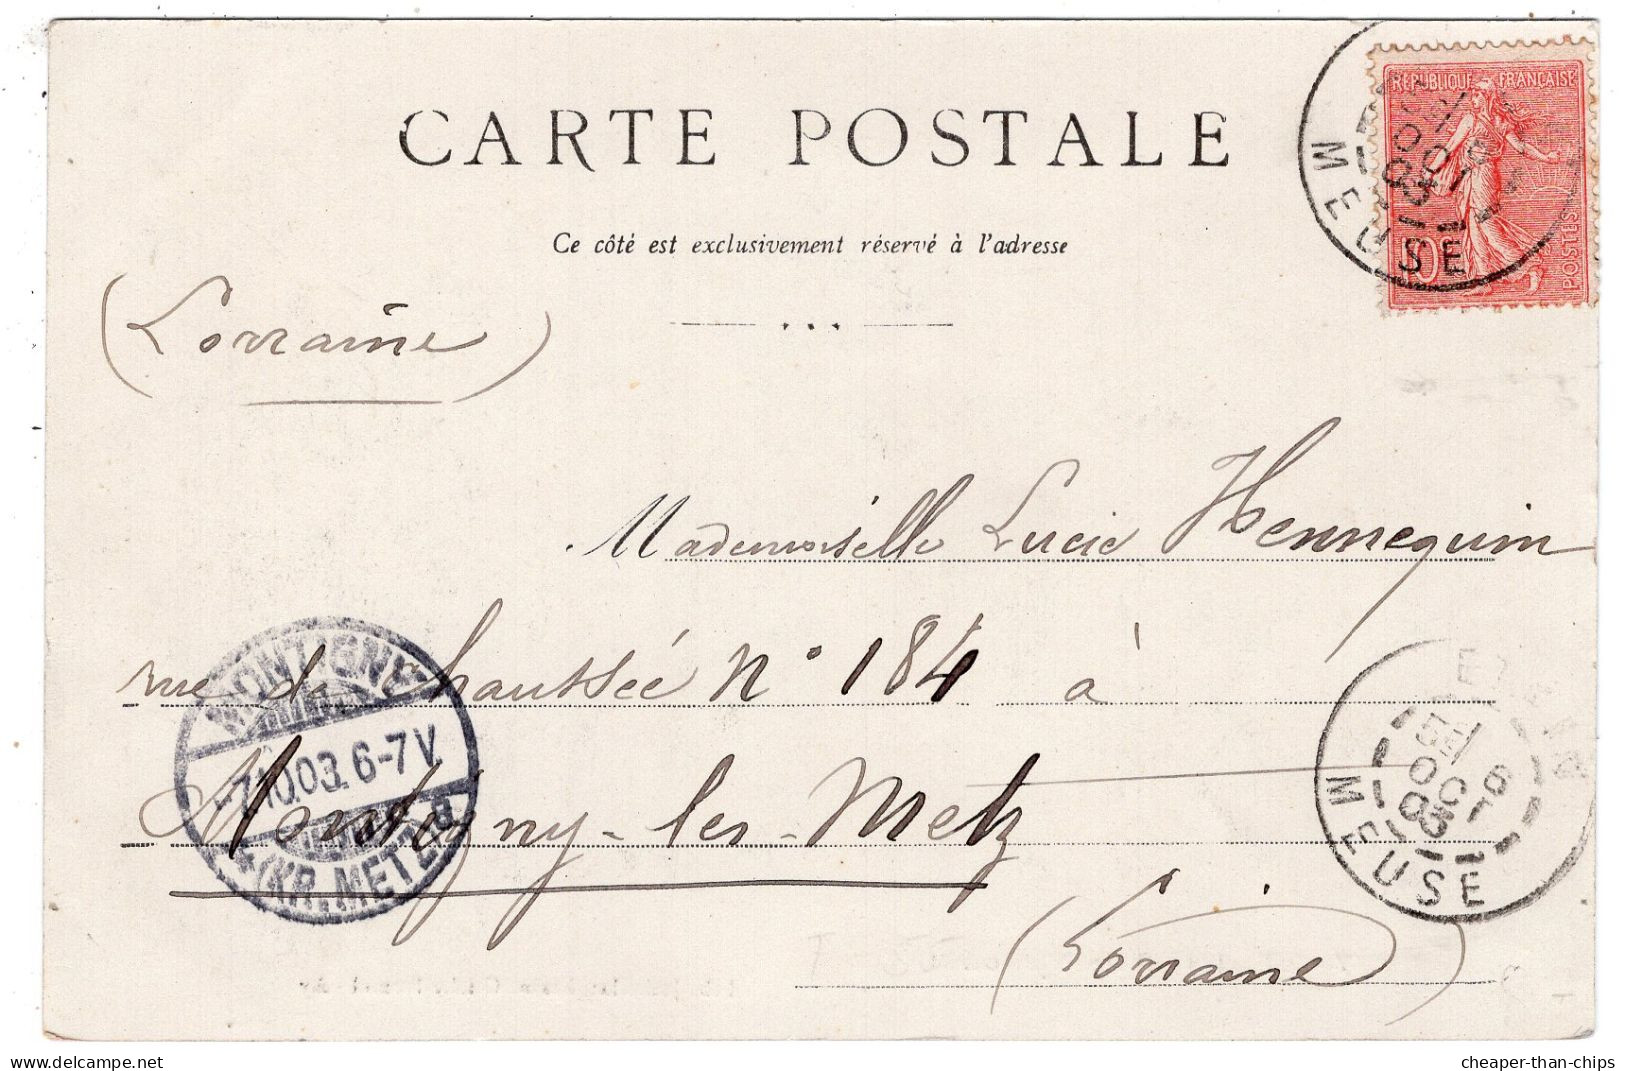 CARTE POSTALE
Ce côté est exclusivement réservé à l'adresse
(Lorraine)
RÉPUBLIQUE FRANÇAISE
10c
POSTES
MEUSE
OCT
03
Mademoiselle Lucie Hennequin
rue de chaussée N° 184 à
Montigny-les-Metz
(Lorraine)
MONTIGNY
-7.10.03. 6-7 V.
(KR. METZ) a
6
OCT
03
MEUSE
cheaper-than-chips